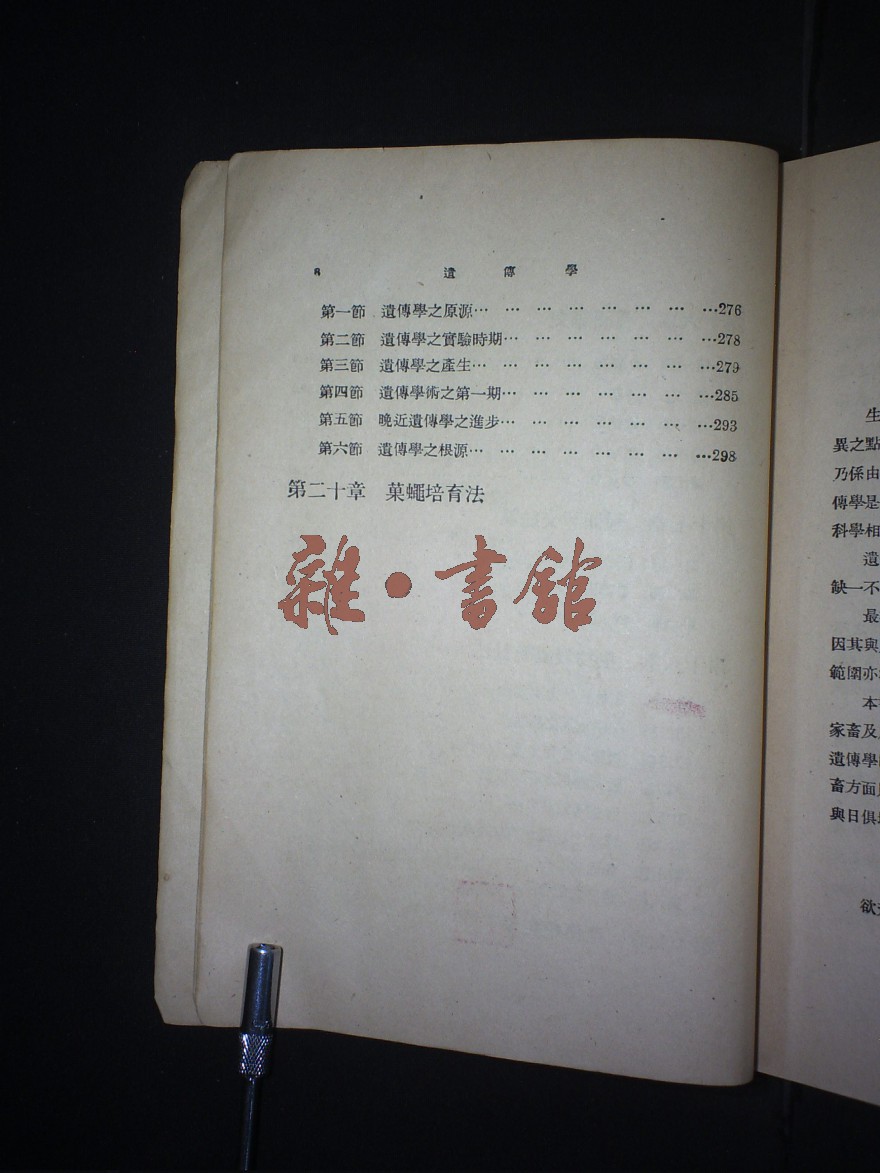 8 遺傳學
第一節 遺傳學之原源… … … … … … … …276
第二節 遺傳學之實驗時期… … … … … … …278
第三節 遺傳學之產生… … … … … … … …279
第四節 遺傳學術之第一期… … … … … … …285
第五節 晚近遺傳學之進步… … … … … … …293
第六節 遺傳學之根源… … … … … … … …298
第二十章 菓蠅培育法
雜·書館
生
異之點
乃係由
傳學是
科學相
遺
缺一不
最
因其與
範圍亦
本
家畜及
遺傳學
畜方面
與日俱
欲